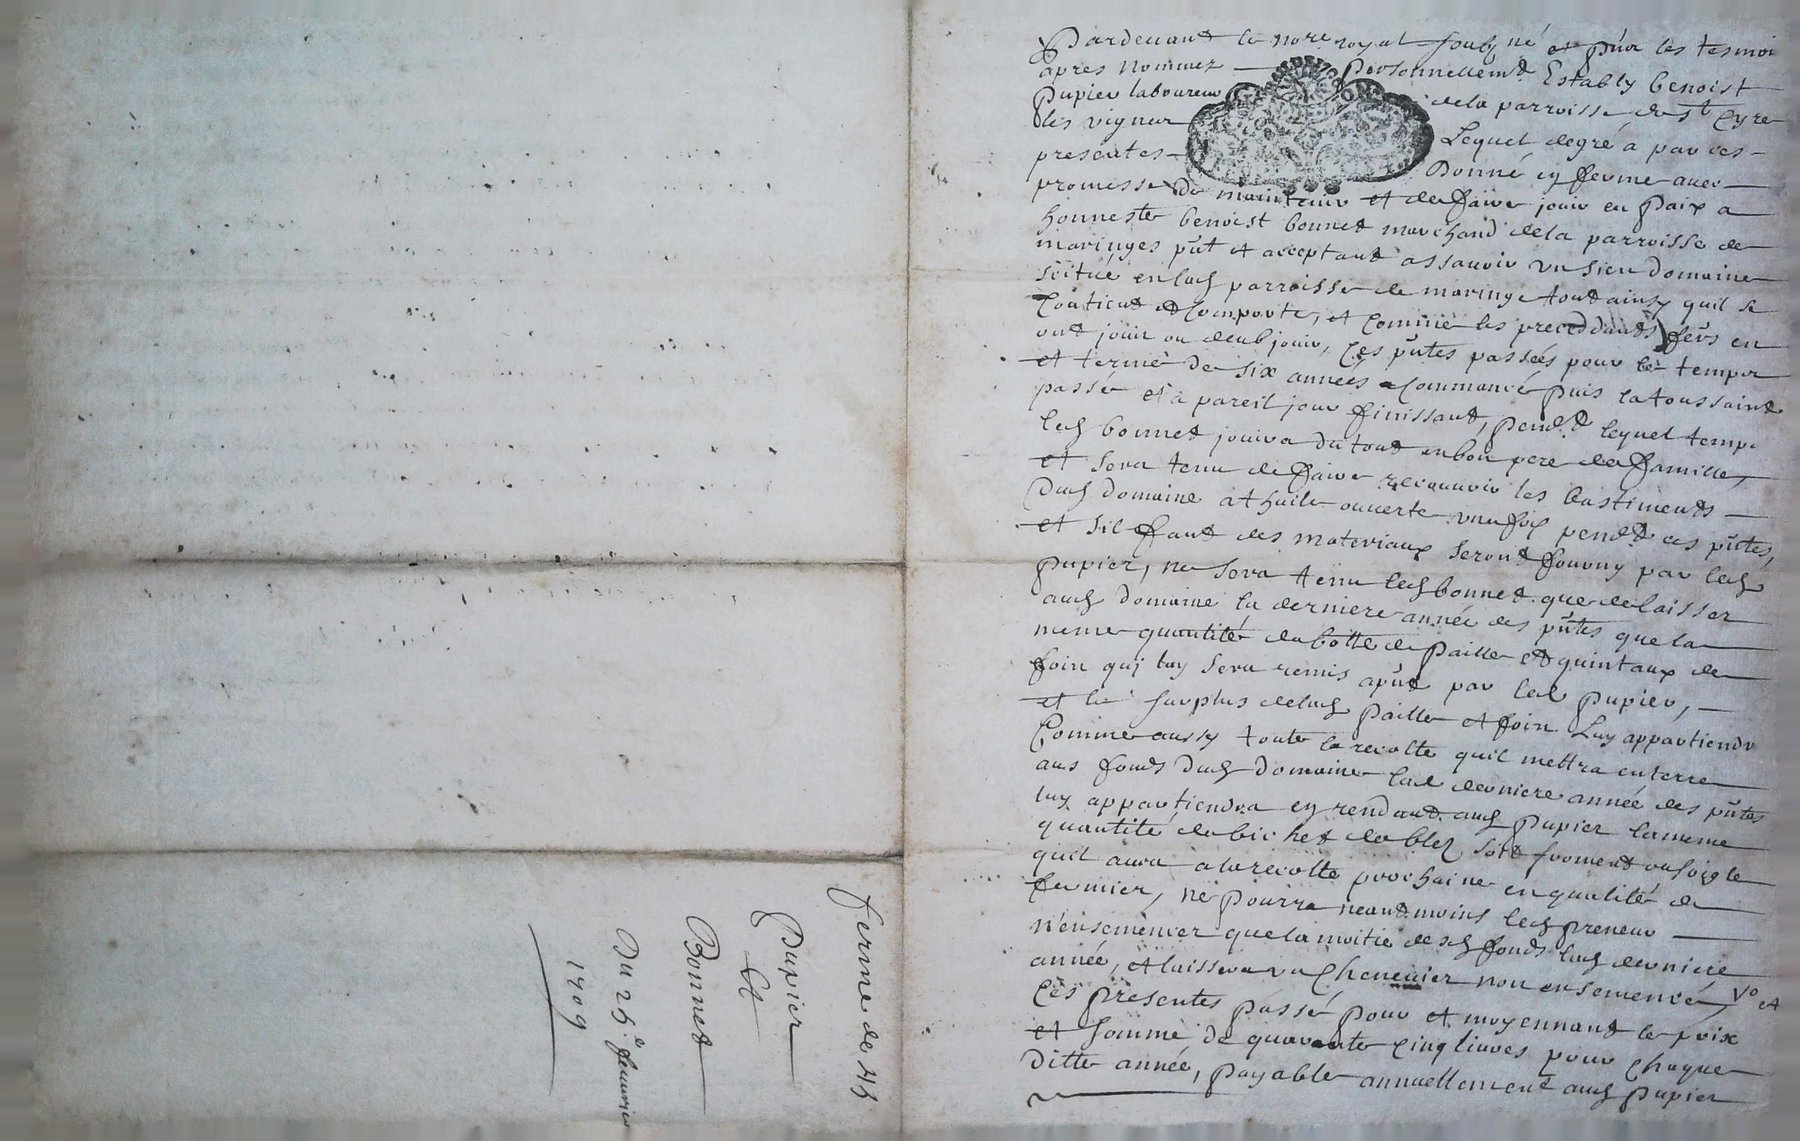 Pardevant le no.re royal soubz.né et p̃nt les tesmoi
apres nommez — personnellem.t Estably benoist
Pupier laboureur de la parroisse de s.t Cyre
les vignes Lequel degré a par ces
presentes Donné en ferme avec
promesse de maintenir et de faire jouir en paix a
honneste benoist bonnet marchand de la parroisse de
maringes p̃nt et acceptant assavoir un sien domaine
scitué en lad parroisse de maringe tout ainsy quil se
Contient et Comporte, et comme les preceddants fers en
ont jouir ou deub jouir, Ces p̃ntes passées pour le temps
et terme de six années Commancé puis la toussaint
passée et a pareil jour finissant, pend.t lequel temp.
led bonnet jouira du tout en bon pere de famille,
et sera tenu de faire recouvrir les bastiments —
dud domaine a thuile ouverte une fois pend.t ces p̃ntes,
et sil faut des materiaux seront fourny par led
pupier, ne sera tenu led bonnet que de laisser
aud domaine la derniere année des p̃ntes que la
meme quantité de botte de paille et quintaux de
foin quj luy sera remis ap̃nt par led pupier, —
et le surplus de lad paille et foin Luy appartiendr
Comme aussy toute la recolte quil mettra en terre
aus fonds dud domaine lad derniere année des p̃ntes
luy appartiendra en rendant aud pupier la meme
quantité de bichet de bled soit froment ou soigle
quil aura a la recolte prochaine en qualité de
fermier, ne pourra neantmoins led preneur —
n'ensemencer que la moitié desd fonds lad derniere
année, et laissera un Chenevier non ensemencé, Vo et
Ces presentes passé pour et moyennant le prix
et somme de quarante Cinq livres pour chaque
ditte année, payable annuellement aud pupier
ferme de 45
Pupier
Et
Bonnet
Du 25.e fevvrier
1709